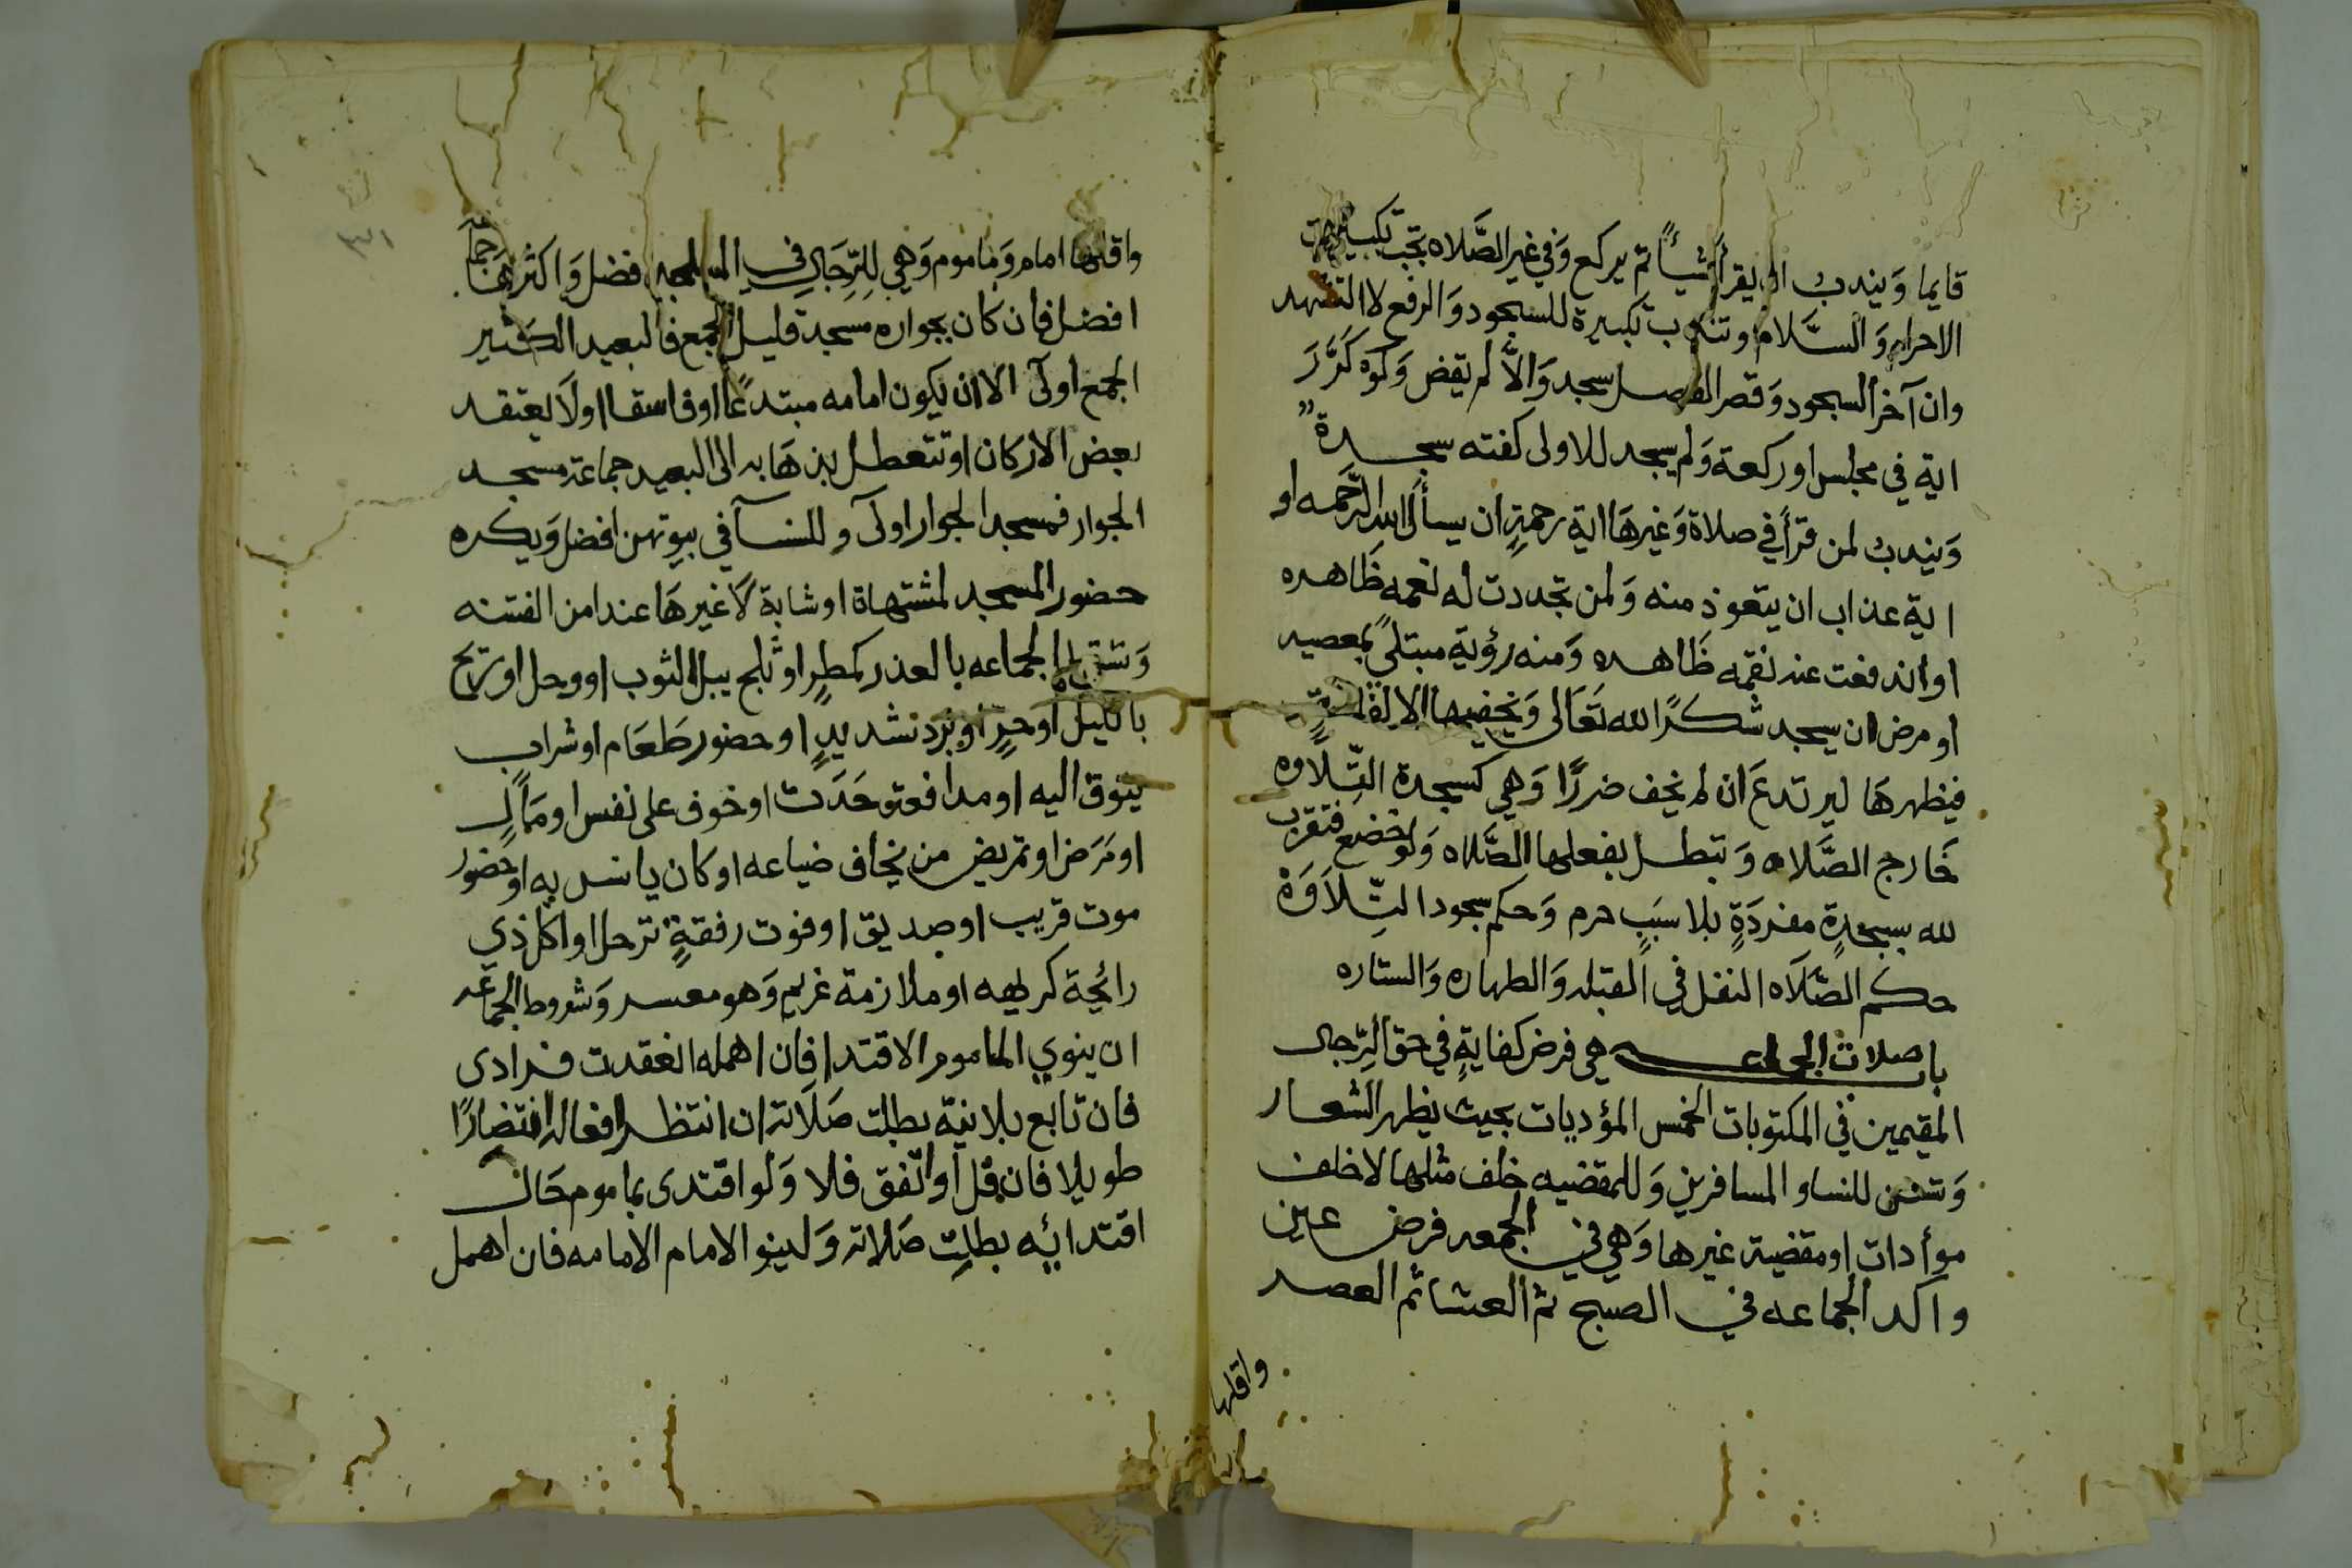 قايما وَيندب ان يقرأ شيأً ثم يركع وَفي غير الصَّلاه تجب تكبيرة
الاحرام وَ السَّلام وتندب تكبيرة للسجود وَالرفع لا التشهد
وان آخر السجود وَقصر الفصل سجد وَالاَّ لم يقض وَلَوْ كَرَّرَ
اية في مجلس اوركعة وَلم يسجد للاولى كفته سجدة
وَيندب لمن قرأ في صلاة وَغيرهَا اية رحمةٍ ان يسأل الله الرَّحمه او
اية عذاب ان يتعوذ منه وَلمن تجددت له نعمه ظَاهره
او اندفعت عنه نقمه ظَاهره وَمنه رؤية مبتلىً بمعصيه
او مرض ان يسجد شكرًا لله تَعَالى وَيخفيها الا لفاسق
فيظهرهَا ليرتدعَ ان لم يخف ضررًا وَهي كسجدة التِّلاوه
خَارج الصَّلاه وَتبطل بفعلها الصَّلاه وَلو خضع فتقرب
لله بسجدةٍ مفردَةٍ بلا سبَبٍ حرم وَحكم سجود التِّلاَوَةْ
حكم الصَّلاَه النفل في القبله وَالطهاره وَالستاره
باب صلات الجماعه هي فرض كفايةٍ في حق الرِّجال
المقيمين في المكتوبات الخمس المؤديات بحيث يظهر الشعار
وَتسن للنسا و المسافرين وَللمقضيه خلف مثلها لا خلف
موأدات او مقضية غيرها وَهي في الجمعه فرض عين
واكد الجماعه في الصبح ثم العشا ثم العصر
واقلها
واقلها امام وَماموم وَهي لِلرِّجَالِ في المساجد افضل وَاكثرهَا جمَاعَه
افضل فان كان بجواره مسجد قليل الجمع فالبعيد الكثير
الجمع اولىَ الا ان يكون امامه مبتدعًا اوفاسقا اولاَ يعتقد
بعض الاركان او تتعطل بذهَابه الى البعيد جماعة مسجد
الجوار فمسجد الجوار اولىَ و للنسآ في بيوتهن افضل وَيكره
حضور المسجد لمشتهاة او شابة لاَ غيرهَا عند امن الفتنه
وَتسقط الجماعه بالعذر كمطرٍ او ثلج يبل الثوب او وحل او ريح
بالليل او حرٍّ او بَردٍ شديدٍ او حضور طَعَام او شراب
يتوق اليه او مدافعة حَدَث او خوف على نفس او مَالٍ
او مَرَض او تمريض من يخاف ضياعه او كان يانس به او حضور
موت قريب او صديق او فوت رفقةٍ ترحل او اكل ذي
رائحة كريهه او ملازمة غريم وَهو معسر وَشروط الجماعَه
ان ينوي الماموم الاقتدا فان اهمله انعقدت فرادى
فان تابع بلا نيّه بطلت صَلاَته ان انتظر افعاله انتضارًا
طويلا فان قل او اتّفق فلا وَلو اقتدى بماموم حَال
اقتدائِه بطلت صَلاته وَلينو الامام الامامه فان اهمل